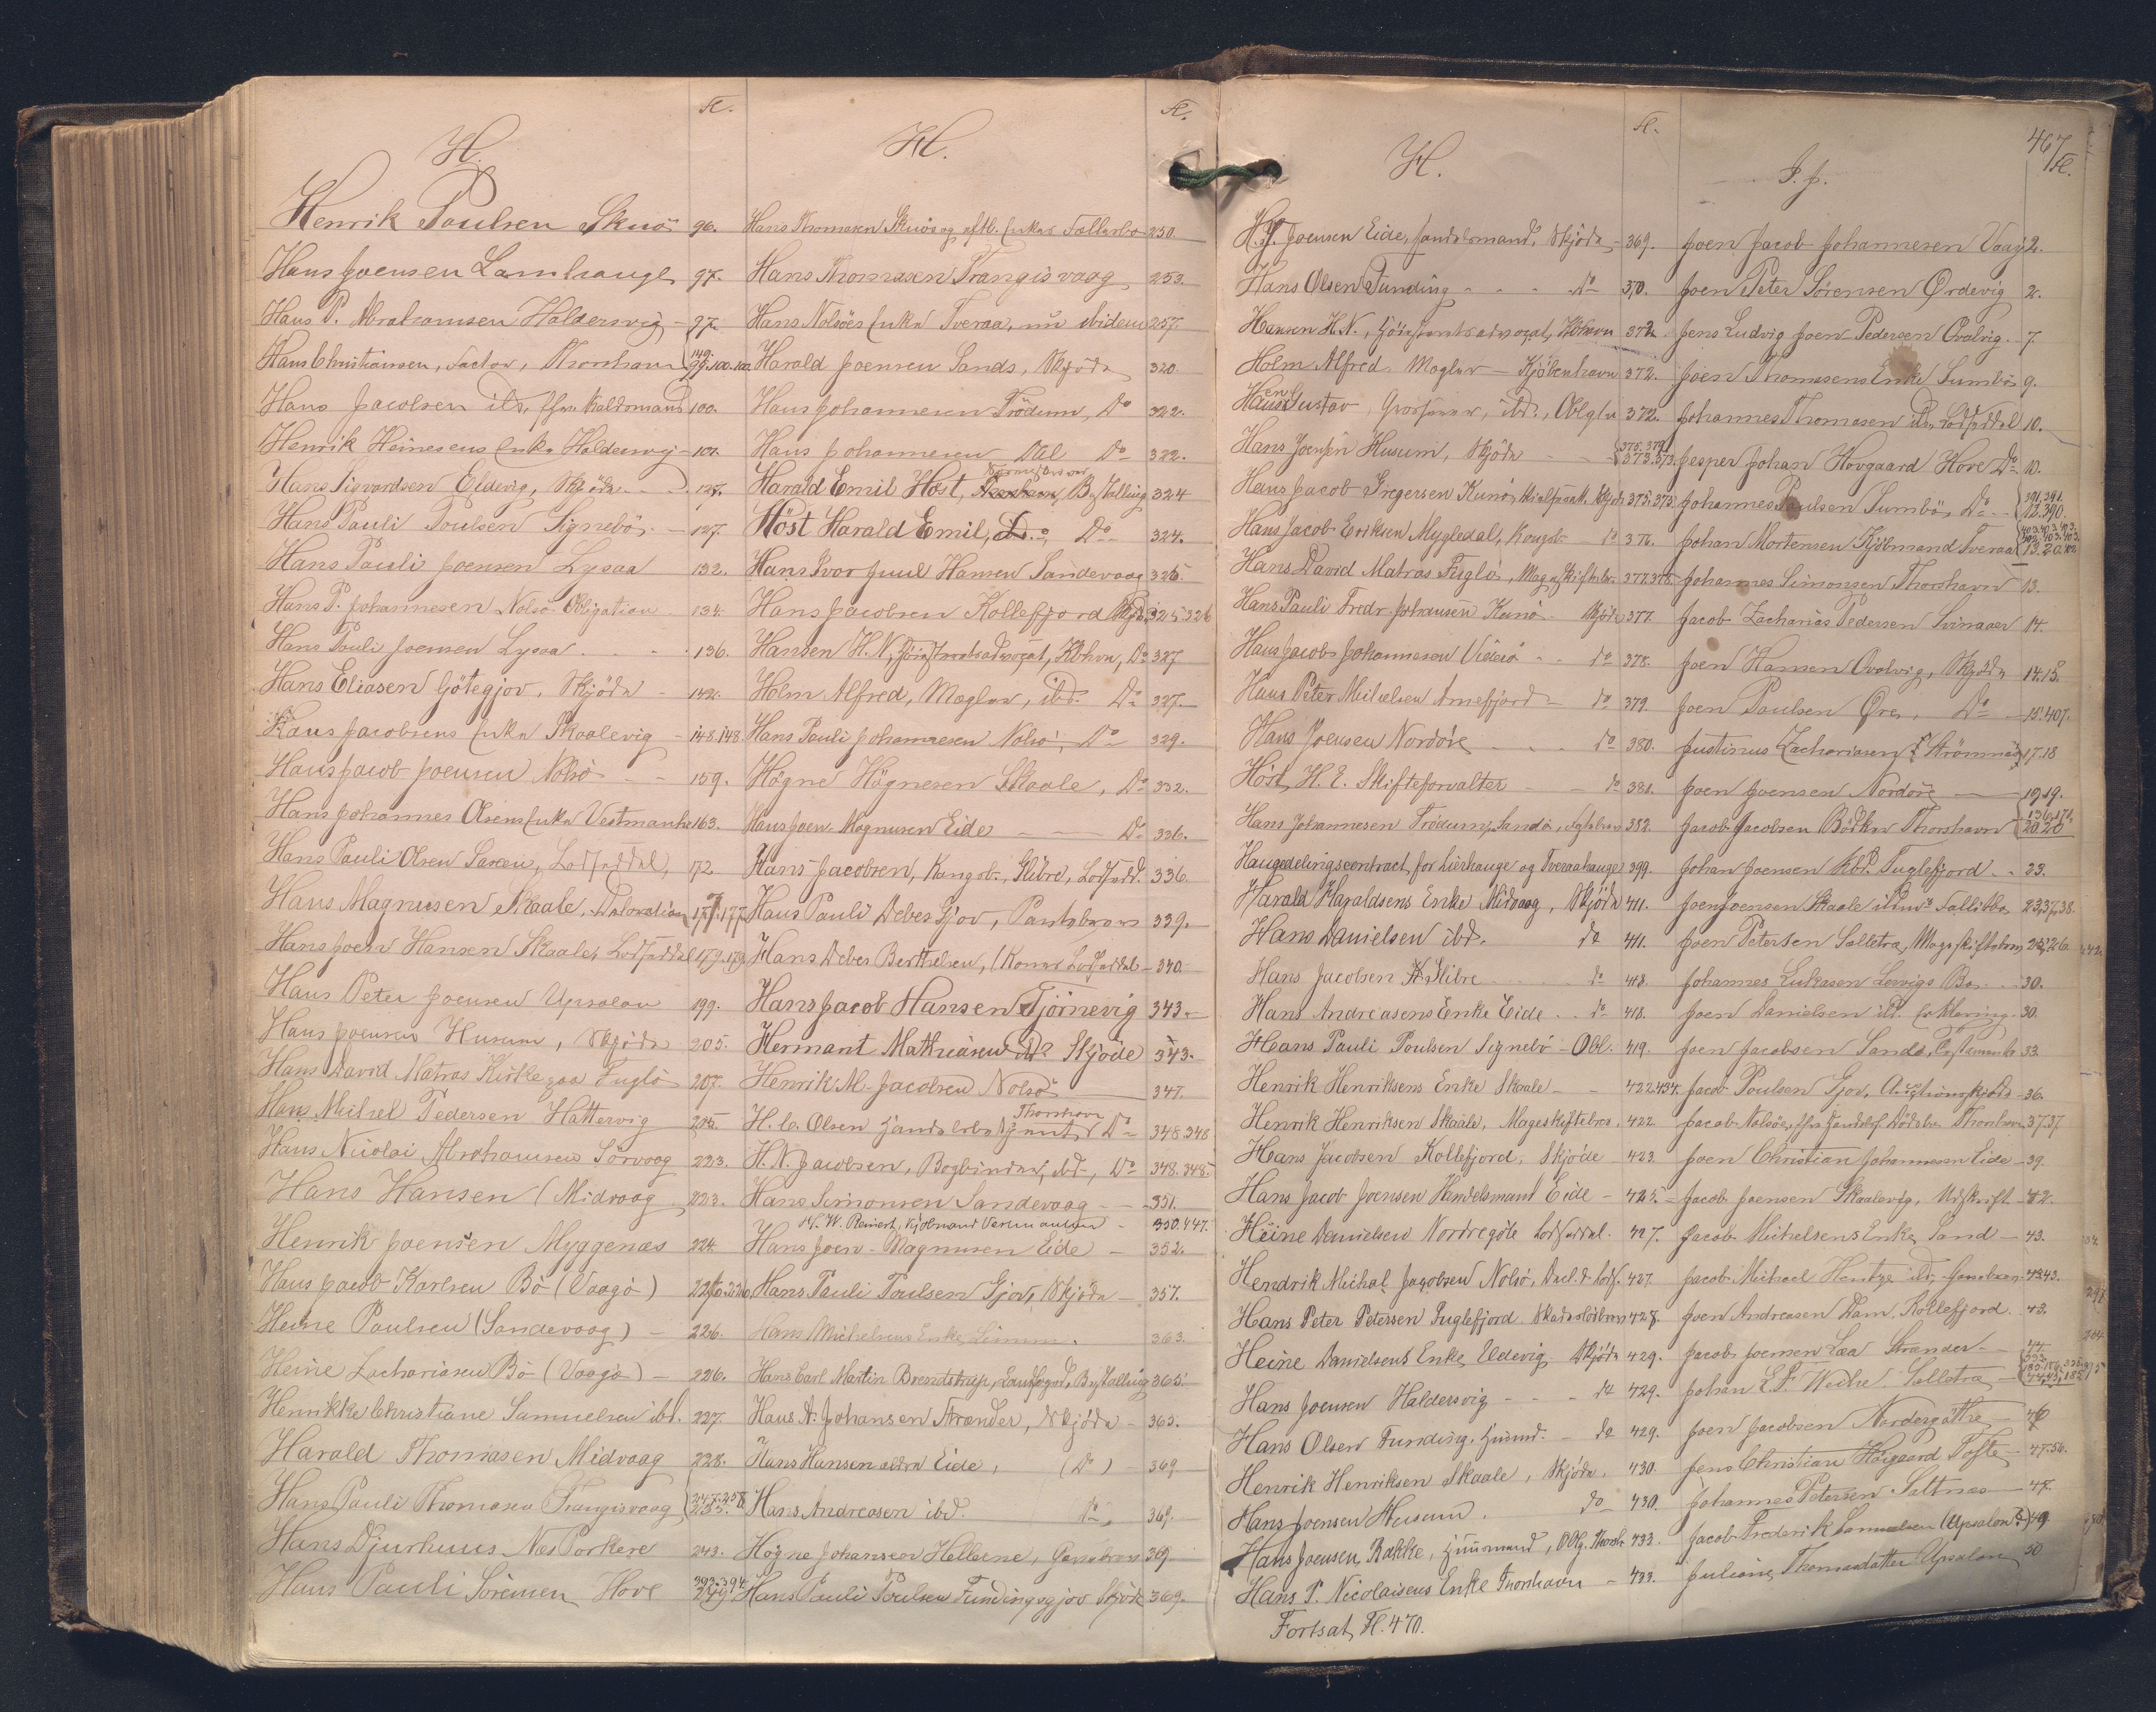 H.
Fl.
Henrik Poulsen Skuø 96.
Hans Joensen Lamhauge 97.
Hans P. Abrahamsen Haldersvig 97.
Hans Christiansen, Factor, Thorshavn 149. 99.100.100.
Hans Jacobsen ibd. 100.
Henrik Heinesens Enke Haldersvig 101.
Hans Sigvardsen Eldevig, Skjøde
Hans Pauli Poulsen Signebø 127.
Hans Pauli Joensen Lysaa 132.
Hans P. Johannesen Nolsø Obligation 134.
Hans Pauli Joensen Lysaa 136.
Hans Eliasen Götegjov, Skjöde 142.
Hans Jacobsens Enke Skaalevig 148.148.
Hans Jacob Joensen Nolsö 159.
Hans Johannes Olsens Enke Vestmanh 163.
Hans Pauli Olsen Saxen, Lodseddel, 172.
Hans Magnusen Skaale, 177.177
Hans Joen Hansen Skaale, Lodseddel 179.179
Hans Peter Joensen Upsalon 199.
Hans Joensen Husum, Skjöde 205.
Hans David Matras Kirke paa Fuglö 207.
Hans Michel Pedersen Hattervig 205.
Hans Nicolai Abrahamsen Sörvaag 223.
Hans Hansen (Midvaag 223.
Henrik Joensen Myggenæs 224.
Hans Jacob Karlsen Bö (Vaagö)
Heine Poulsen (Sandevaag) 226.
Heine Zachariasen Bö (Vaagö) 226.
Henrikke Christiane Samuelsen ibd. 227.
Harald Thomasen Midvaag 228.
Hans Pauli Thomasen Trangisvaag 247.258 235.
Hans Djurhuus Næs Porkere 243.
Hans Pauli Sörensen Hove 393.394 249
H.
Fl.
Hans Thomasen Skuö og eftl. Enke 250
Hans Thomasen Trangisvaag 253.
Hans Nolsöes Enke Tveraa, nu ibidem 257.
Harald Joensen Sands, Skjöde 320.
Hans Johannesen Trödum, Do 322.
Hans Johannesen Dal Do 322.
Harald Emil Höst, Bestalling 324
Höst Harald Emil, Do 324.
Hans Ivar Juul Hansen Sandevaag 325.
Hans Jacobsen Kollefjord Skjöde 325.326
Hansen H.N, Höiesteretsadvocat, Kbhvn, Do 327
Holm Alfred, Mægler, ibd. Do 327.
Hans Pauli Johannesen Nolsö, Do 329.
Högne Högnesen Skaale, Do 332.
Hans Joen Magnusen Eide Do 336.
Hans Jacobsen, Kongsb., Glibre, Lodsedd. 336.
Hans Pauli Debes Gjov, Pantebrev 339.
Hans Debes Berthelsen, Lodseddel 340.
Hans Jacob Hansen Tjörnevig 343.
Hermant Mathiasen ibd Skjöde 343.
Henrik M. Jacobsen Nolsö 347.
Thorshavn
H. C. Olsen Handelsbetjent, Do 348.348
H. N. Jacobsen, Bogbinder, ibd., Do 348.348.
Hans Simonsen Sandevaag 351.
H. W. Reinert, Kjöbmand Vestmanhavn 350.447.
Hans Joen Magnusen Eide 352.
Hans Pauli Poulsen Gjov, Skjöde 357.
Hans Michelsens Enke 363.
Hans Carl Martin Brendstrup, Landfoged, Bestalling 365.
Hans D. Johansen Strænder, Skjöde 365.
Hans Hansen ældre Eide, (Do) 369.
Hans Andreasen ibd. Do 369.
Högne Johansen Hellerne, Gavebrev 369
Hans Pauli Poulsen Fundingsgjov Skjöde 369.
H.
Fl.
H. J. Joensen Eide, Handelsmand, Skjöde 369.
Hans Olsen Funding Do 370.
Hansen H.N., Höiesteretsadvocat, Kbhavn 372.
Holm Alfred. Mægler Kjöbenhavn 372.
Hansen Gustav, Grosserer, ibd., Oblgtn 372.
Hans Joensen Husum, Skjöde 376.379. 373.373.
Hans Jacob Gregersen Kunö, 375.375
Hans Jacob Eriksen Mygledal, Kongsb. do 376.
Hans David Matras Fuglö, Mageskiftebr. 377.378
Hans Pauli Fredr. Johansen Kunö Skjöde 377.
Hans Jacob Johannesen Viderö do 378.
Hans Peter Michelsen Arnefjord do 379.
Hans Joensen Nordöre do 380.
Höst, H. E. Skifteforvalter do 381.
Hans Johannesen Trödum, Sandö, 382.
Haugedelingscontract for Lierhauge og Tveraahauge 399.
Harald Haraldsens Enke Midvaag, Skjöde 411.
Hans Danielsen ibd. do 411.
Hans Jacobsen Glibre do 418.
Hans Andreasens Enke Eide do 418.
Hans Pauli Poulsen Signebö Obl. 419.
Henrik Henriksens Enke Skaale 422.434.
Henrik Henriksen Skaale, Mageskiftebrev, 422.
Hans Jacobsen Kollefjord, Skjöde 423.
Hans Jacob Joensen Handelsmand Eide 425.
Heine Danielsen Nordregöte Lodseddel. 427.
Hendrik Michal Jacobsen Nolsö, 427.
Hans Peter Petersen Fuglefjord Skadeslösbrev 428.
Heine Danielsens Enke Eldevig Skjöde 429.
Hans Joensen Haldersvig do 429.
Hans Olsen Funding, do 429.
Henrik Henriksen Skaale, Skjöde. 430.
Hans Joensen Husum. do 430.
Hans Joensen Bakke, Huusmand, Oblg. Thorsh. 433.
Hans P. Nicolaisens Enke Thorshavn 433.
Fortsat Fl. 470.
467
I. J.
Fl.
Joen Jacob Johannesen Vaag 2.
Joen Peter Sörensen Ördevig 2.
Jens Ludvig Joen Pedersen Qvalvig 7.
Joen Thomasens Enke Sumbö 9.
Johannes Thomasen ibd. Lodseddel 10.
Jesper Johan Hovgaard Hove Do 10.
Johannes Poulsen Sumbö, Do 391.391. 12.390.
Johan Mortensen Kjöbmand Tveraa
Johannes Simonsen Thorshavn 13.
Jacob Zacharias Pedersen Svinaaer 14.
Joen Hansen Qvalvig, Skjöde 14.15.
Joen Poulsen Öre, Do 15.407.
Justinus Zachariasen Strömnæs 17.18
Joen Joensen Nordöre 19.19.
Jacob Jacobsen Bödker Thorshavn 136.171. 20.20
Johan Joensen Fuglefjord 23.
Joen Joensen Skaale 23.37.38.
Joen Petersen Selletræ, Mageskiftebrev 26.
Johannes Lukasen Lervigs Bø 30.
Joen Danielsen ibd. 30.
Joen Jacobsen Sands, Testamente 33.
Jacob Poulsen Gjov, Auctionsskjöde 36.
Jacob Nolsöe, Dödsbo Thorshavn 37.37
Joen Christian Johannesen Eide 39.
Jacob Joensen Skaalevig, Udskrift 42.
Jacob Michelsens Enke, Sand 43.
Jacob Michael Hentze ibd, Gavebrev 43.43.
Joen Andreasen Dam, Kollefjord. 43.
Jacob Joensen Laa Strænder 44.
Johan E.F. Weihe Selletræ
Joen Jacobsen Nordregöthe 46
Jens Christian Hoigaard Tofte 47.56.
Johannes Petersen Saltnæs 47.
Jacob Frederik Samuelsen (Upsalon) 49
Juliane Thomasdatter Upsalon 50